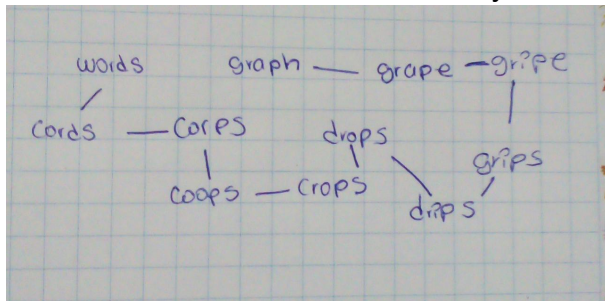 words graph grape gripe
cords corps drops
grips
coops crops
drips